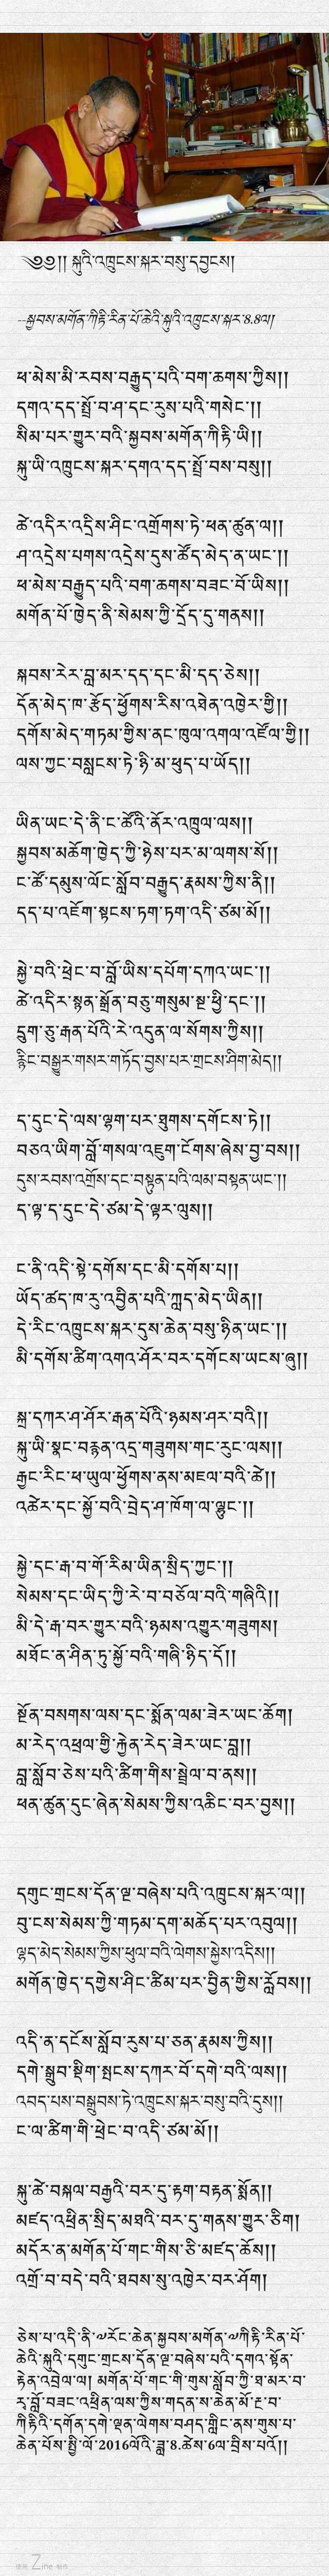 ༄༅།། སྐུའི་འཁྲུངས་སྐར་བསུ་དབྱངས།
--སྐྱབས་མགོན་ཀིརྟི་རིན་པོ་ཆེའི་སྐུའི་འཁྲུངས་སྐར་8.8ལ།
ཕ་མེས་མི་རབས་བརྒྱུད་པའི་བག་ཆགས་ཀྱིས།།
དགའ་དད་སྤྲོ་བ་ཤ་དང་རུས་པའི་གསེང་།།
སིམ་པར་གྱུར་བའི་སྐྱབས་མགོན་ཀིརྟི་ཡི།།
སྐུ་ཡི་འཁྲུངས་སྐར་དགའ་དད་སྤྲོ་བས་བསུ།།
ཚེ་འདིར་འདྲིས་ཤིང་འགྲོགས་ཏེ་ཕན་ཚུན་ལ།།
ཤ་འདྲེས་པགས་འདྲེས་དུས་ཚོད་མེད་ན་ཡང་།།
ཕ་མེས་བརྒྱུད་པའི་བག་ཆགས་བཟང་པོ་ཡིས།།
མགོན་པོ་ཁྱེད་ནི་སེམས་ཀྱི་དྲོད་དུ་གནས།།
སྐབས་རེར་བླ་མར་དད་དང་མི་དད་ཅེས།།
དོན་མེད་ཁ་རྩོད་ཕྱོགས་རིས་འཐེན་འཁྱེར་གྱི།།
དགོས་མེད་གཏམ་གྱིས་ནང་ཁུལ་འགལ་འཛོལ་གྱི།།
ལས་ཀྱང་བསླངས་ཏེ་ཉི་མ་ཕུད་པ་ཡོད།།
ཡིན་ཡང་དེ་ནི་ང་ཚོའི་ནོར་འཁྲུལ་ལས།།
སྐྱབས་མཆོག་ཁྱེད་ཀྱི་ཉེས་པར་མ་ལགས་སོ།།
ང་ཚོ་དམུས་ལོང་སློབ་བརྒྱུད་རྣམས་ཀྱིས་ནི།།
དད་པ་འཇོག་སྟངས་ཏག་ཏག་འདི་ཙམ་མོ།།
སྐྱེ་བའི་ཕྲེང་བ་བློ་ཡིས་དཔོག་དཀའ་ཡང་།།
ཚེ་འདིར་སྙན་སྒྲོན་བཅུ་གསུམ་སྔ་ཕྱི་དང་།།
དྲུག་ཅུ་རྒན་པོའི་རེ་འདུན་ལ་སོགས་ཀྱིས།།
རྙིང་བསྒྱུར་གསར་གཏོད་བྱས་པར་གྲངས་ཤིག་མེད།།
ད་དུང་དེ་ལས་ལྷག་པར་ཐུགས་དགོངས་ཏེ།།
བཅའ་ཡིག་བློ་གསལ་འཇུག་ངོགས་ཞེས་བྱ་བས།།
དུས་རབས་འགྲོས་དང་བསྟུན་པའི་ལམ་བསྟན་ཡང་།།
ད་ལྟ་ད་དུང་དེ་ཙམ་དེ་ལྟར་ལུས།།
ང་ནི་འདི་སྟེ་དགོས་དང་མི་དགོས་པ།།
ཡོད་ཚད་ཁ་རུ་འབྱིན་པའི་ཀླད་མེད་ཡིན།།
དེ་རིང་འཁྲུངས་སྐར་དུས་ཆེན་བསུ་ཉིན་ཡང་།།
མི་དགོས་ཚིག་འགའ་ཤོར་བར་དགོངས་ཡངས་ཞུ།།
སྐྲ་དཀར་ཤ་ཤོར་རྒན་པོའི་ཉམས་ཤར་བའི།།
སྐུ་ཡི་སྣང་བརྙན་འདྲ་གཟུགས་གང་རུང་ལས།།
རྒྱང་རིང་ཕ་ཡུལ་ཕྱོགས་ནས་མཇལ་བའི་ཚེ།།
འཚེར་དང་སྐྱོ་བའི་ཕྲེད་ཤ་ཁོག་ལ་ལྷུང་།།
སྐྱེ་དང་རྒ་བ་གོ་རིམ་ཡིན་སྲིད་ཀྱང་།།
སེམས་དང་ཡིད་ཀྱི་རེ་བ་བཅོལ་བའི་གཞིའི།།
མི་དེ་རྒ་བར་གྱུར་བའི་ཉམས་འགྱུར་གཟུགས།
མཐོང་ན་ཤིན་ཏུ་སྐྱོ་བའི་གཞི་ཉིད་དོ།།
སྔོན་བསགས་ལས་དང་སྨོན་ལམ་ཟེར་ཡང་ཆོག།
མ་རེད་འཕྲལ་གྱི་རྐྱེན་རེད་ཟེར་ཡང་བླ།།
བླ་སློབ་ཅེས་པའི་ཚིག་གིས་སྦྲེལ་བ་ནས།།
ཕན་ཚུན་དུང་ཞེན་སེམས་ཀྱིས་འཆིང་བར་བྱས།།
དགུང་གྲངས་དོན་ལྔ་བཞེས་པའི་འཁྲུངས་སྐར་ལ།།
བུ་ངས་སེམས་ཀྱི་གཏམ་དག་མཆོད་པར་འབུལ།།
ལྷད་མེད་སེམས་ཀྱིས་ཕུལ་བའི་ལེགས་སྐྱེས་འདིས།།
མགོན་ཁྱེད་དགྱེས་ཤིང་ཚིམ་པར་བྱིན་གྱིས་རློབས།།
འདི་ན་དངོས་སློབ་རུས་པ་ཅན་རྣམས་ཀྱིས།།
དགེ་སྒྲུབ་སྡིག་སྤངས་དཀར་པོ་དགེ་བའི་ལས།།
འབད་པས་བསྒྲུབས་ཏེ་འཁྲུངས་སྐར་བསུ་བའི་དུས།།
ང་ལ་ཚིག་གི་ཕྲེང་བ་འདི་ཙམ་མོ།།
སྐུ་ཚེ་བསྐལ་བརྒྱའི་བར་དུ་རྟག་བརྟན་སྨོན།།
མཛད་འཕྲིན་སྲིད་མཐའི་བར་དུ་གནས་གྱུར་ཅིག།
མདོར་ན་མགོན་པོ་གང་གིས་ཅི་མཛད་ཆོས།།
འགྲོ་བ་བདེ་བའི་ཐབས་སུ་འཁྱེར་བར་ཤོག།
ཅེས་པ་འདི་ནི་༧རོང་ཆེན་སྐྱབས་མགོན་༧ཀིརྟི་རིན་པོ་
ཆེའི་སྐུའི་དགུང་གྲངས་དོན་ལྔ་བཞེས་པའི་དགའ་སྟོན་
རྟེན་འབྲེལ་ལ། མགོན་པོ་གང་གི་གུས་སློབ་ཀྱི་ཐ་མར་བ་
རཱ་བློ་བཟང་འཕྲིན་ལས་ཀྱིས་གདན་ས་ཆེན་མོ་རྔ་བ་
ཀིརྟིའི་དགོན་དགེ་ལྡན་ལེགས་བཤད་གླིང་ནས་གུས་པ་
ཆེན་པོས་སྤྱི་ལོ་2016ལོའི་ཟླ་8.ཚེས་6ལ་བྲིས་པའོ།།